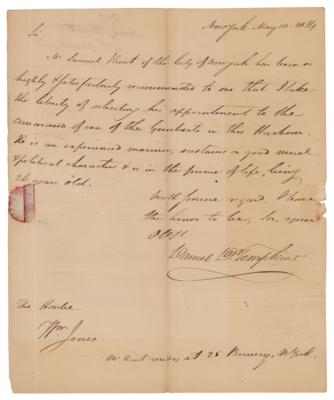 New York May 10. 1814
Sir,
Mr Samuel Hunt of the City of New York has been so
highly & satisfactorily recommended to me that I take
the liberty of soliciting his appointment to the
command of one of the Gunboats in this Harbour.
He is an experienced mariner, sustains a good moral
& political character & is in the prime of life, being
26 years old.
With sincere regard, I have
the honor to be, Sir, your
Ob St
Daniel D. Tompkins
The Honble
Wm Jones
Mr Hunt resides at 25 Bowery, N York.